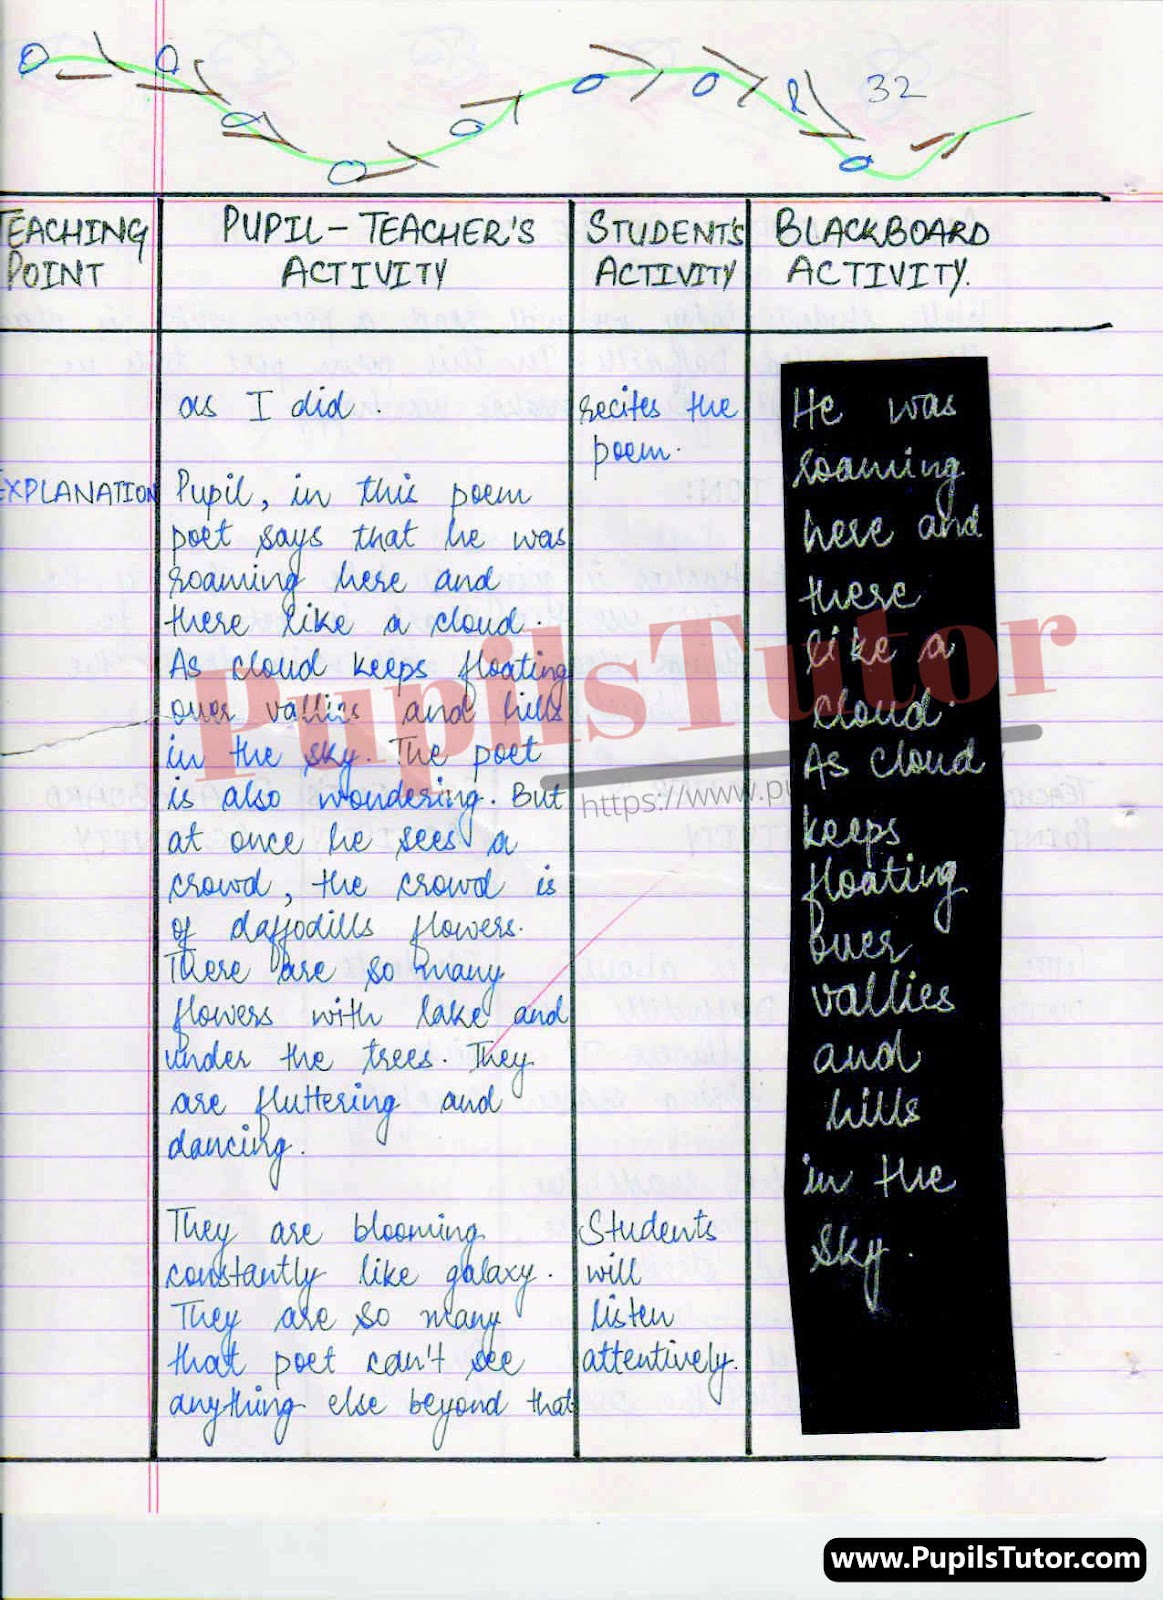 32
TEACHING POINT
PUPIL-TEACHER'S ACTIVITY
STUDENT'S ACTIVITY
BLACKBOARD ACTIVITY.
as I did.
recites the
poem.
EXPLANATION
Pupil, in this poem
poet says that he was
roaming here and
there like a cloud.
As cloud keeps floating
over vallies and hills
in the sky. The poet
is also wondering. But
at once he sees a
crowd, the crowd is
of daffodills flowers.
There are so many
flowers with lake and
under the trees. They
are fluttering and
dancing.
They are blooming
constantly like galaxy.
They are so many
that poet can't see
anything else beyond that
Students
will
listen
attentively.
He was
roaming
here and
there
like a
cloud.
As cloud
keeps
floating
over
vallies
and
hills
in the
sky.
PupilsTutor
https://www.pu
www.PupilsTutor.com